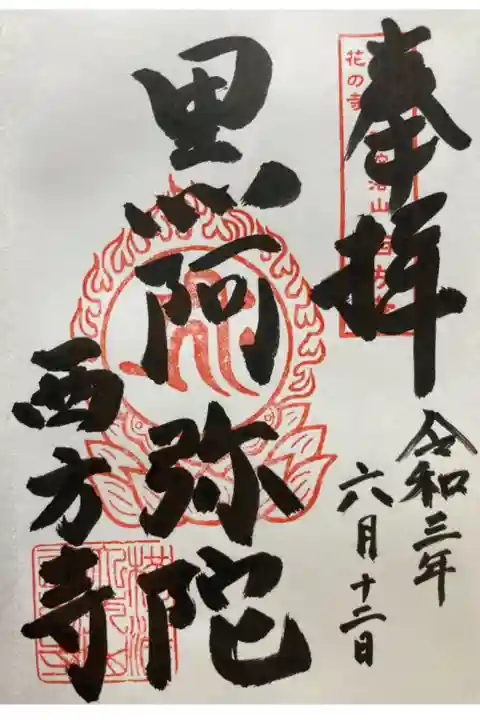 奉拝
花の寺
令和三年
六月十二日
黒阿弥陀
西方寺